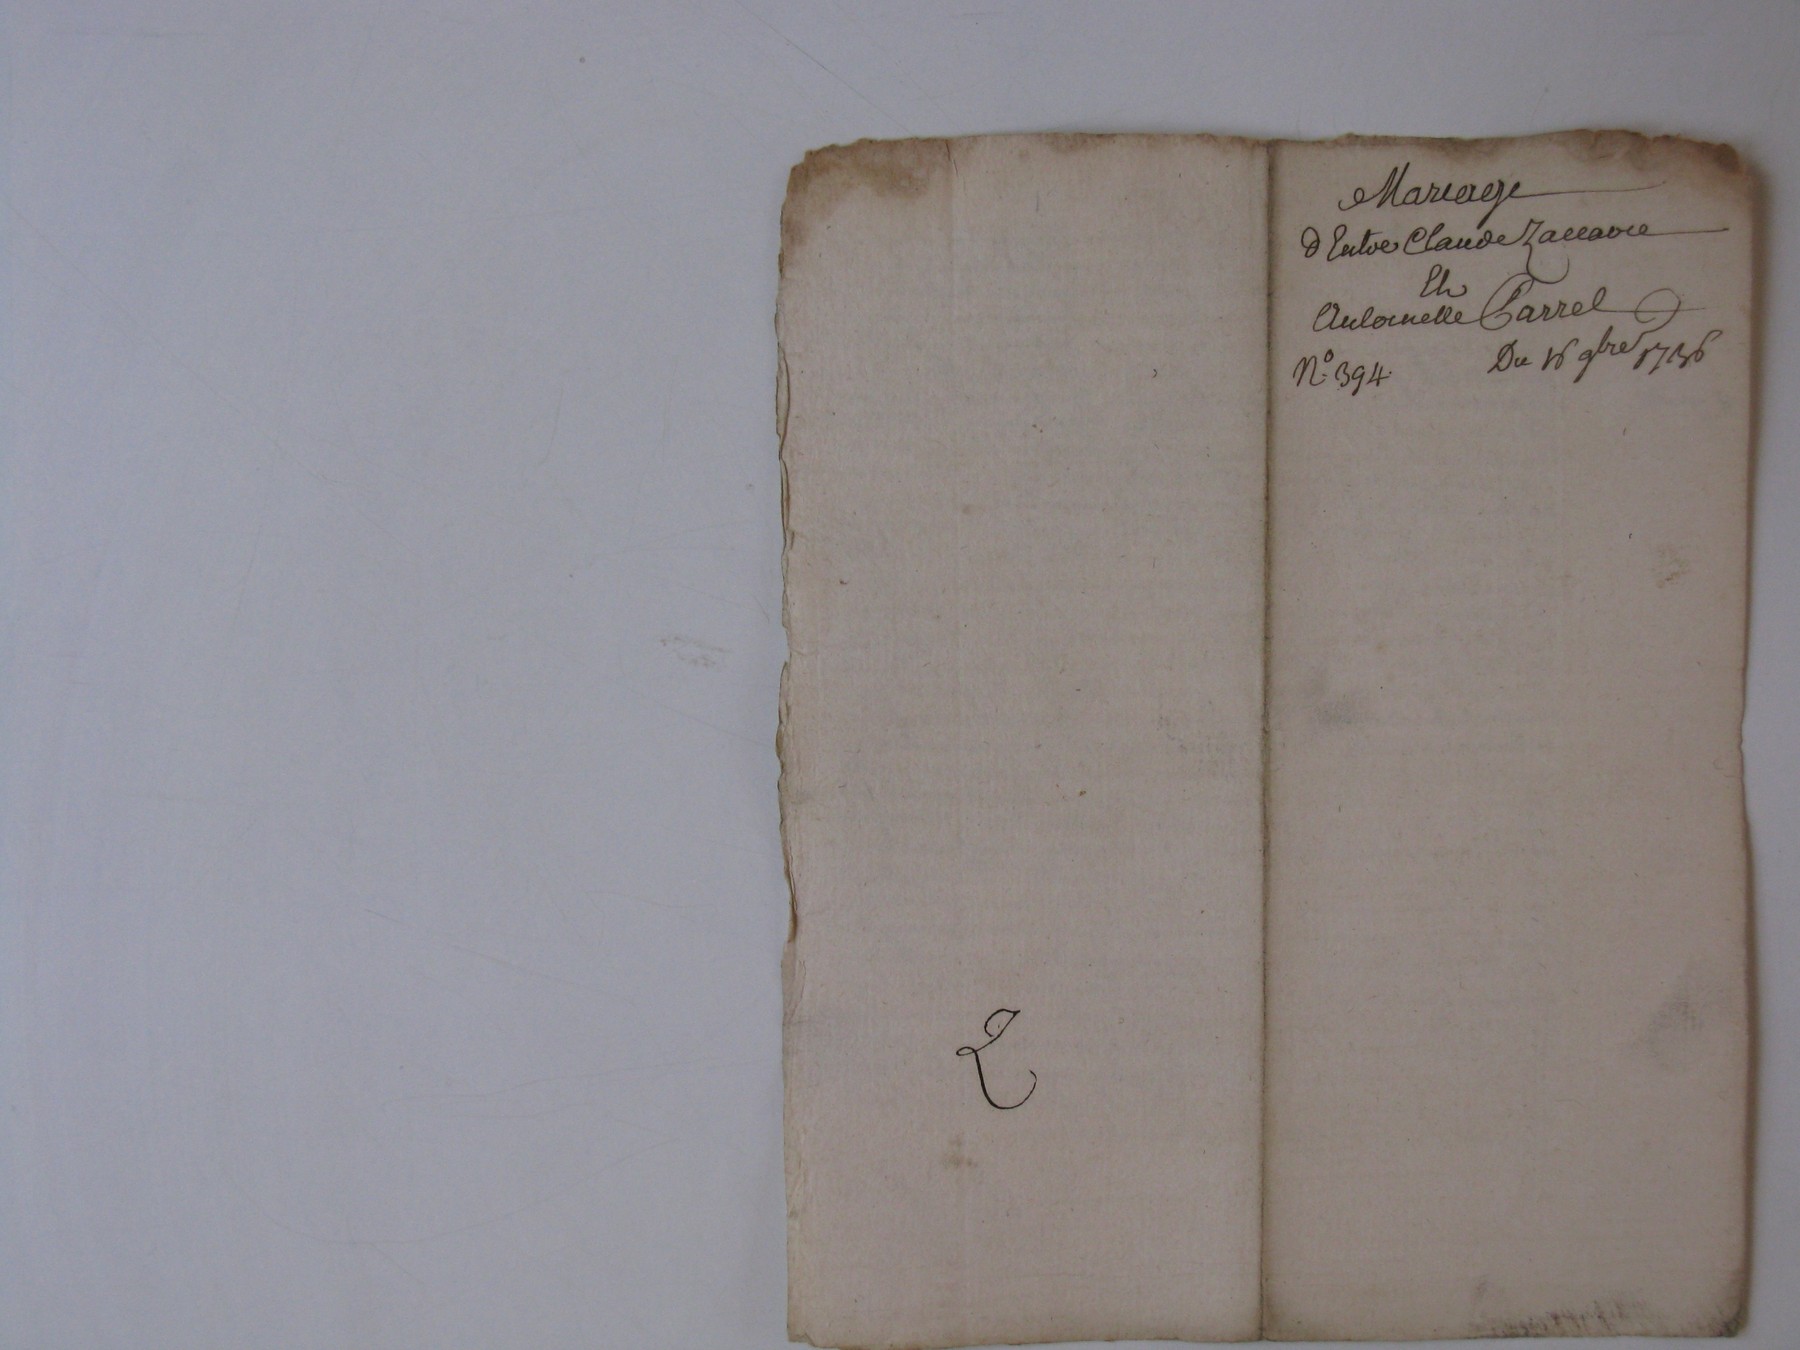 Mariage
d'Entre Claude Zaccarie
Et
Antoinette Carrel
No. 394. Du 16 9bre 1736
2